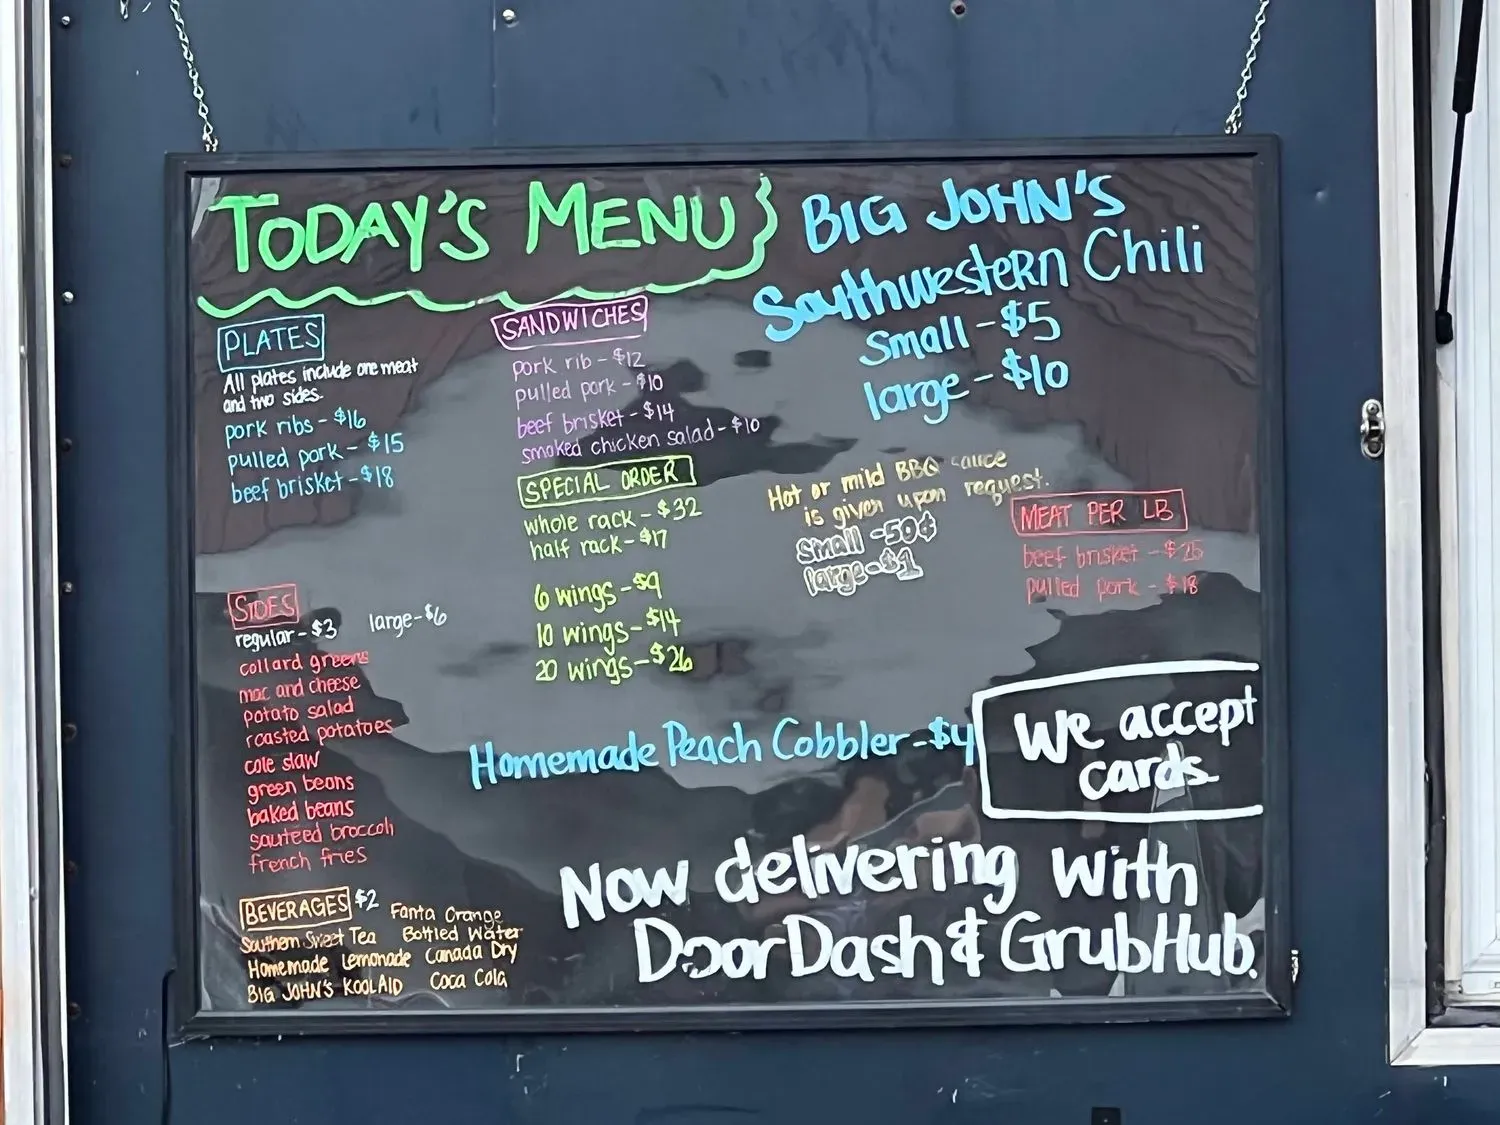 TODAY'S MENU
PLATES
All plates include one meat
and two sides.
pork ribs - $16
pulled pork - $15
beef brisket - $18
SIDES
regular - $3 large - $6
collard greens
mac and cheese
potato salad
roasted potatoes
cole slaw
green beans
baked beans
sauteed broccoli
french fries
BEVERAGES $2
Southern Sweet Tea
Homemade Lemonade
BIG JOHN'S KOOLAID
Fanta Orange
Bottled Water
Canada Dry
Coca Cola
SANDWICHES
pork rib - $12
pulled pork - $10
beef brisket - $14
smoked chicken salad - $10
SPECIAL ORDER
whole rack - $32
half rack - $17
6 wings - $9
10 wings - $14
20 wings - $26
BIG JOHN'S
Southwestern Chili
Small - $5
large - $10
Hot or mild BBQ sauce
is given upon request.
Small - 50¢
large - $1
MEAT PER LB
beef brisket - $25
pulled pork - $18
Homemade Peach Cobbler - $4
We accept
cards
Now delivering with
DoorDash & GrubHub.